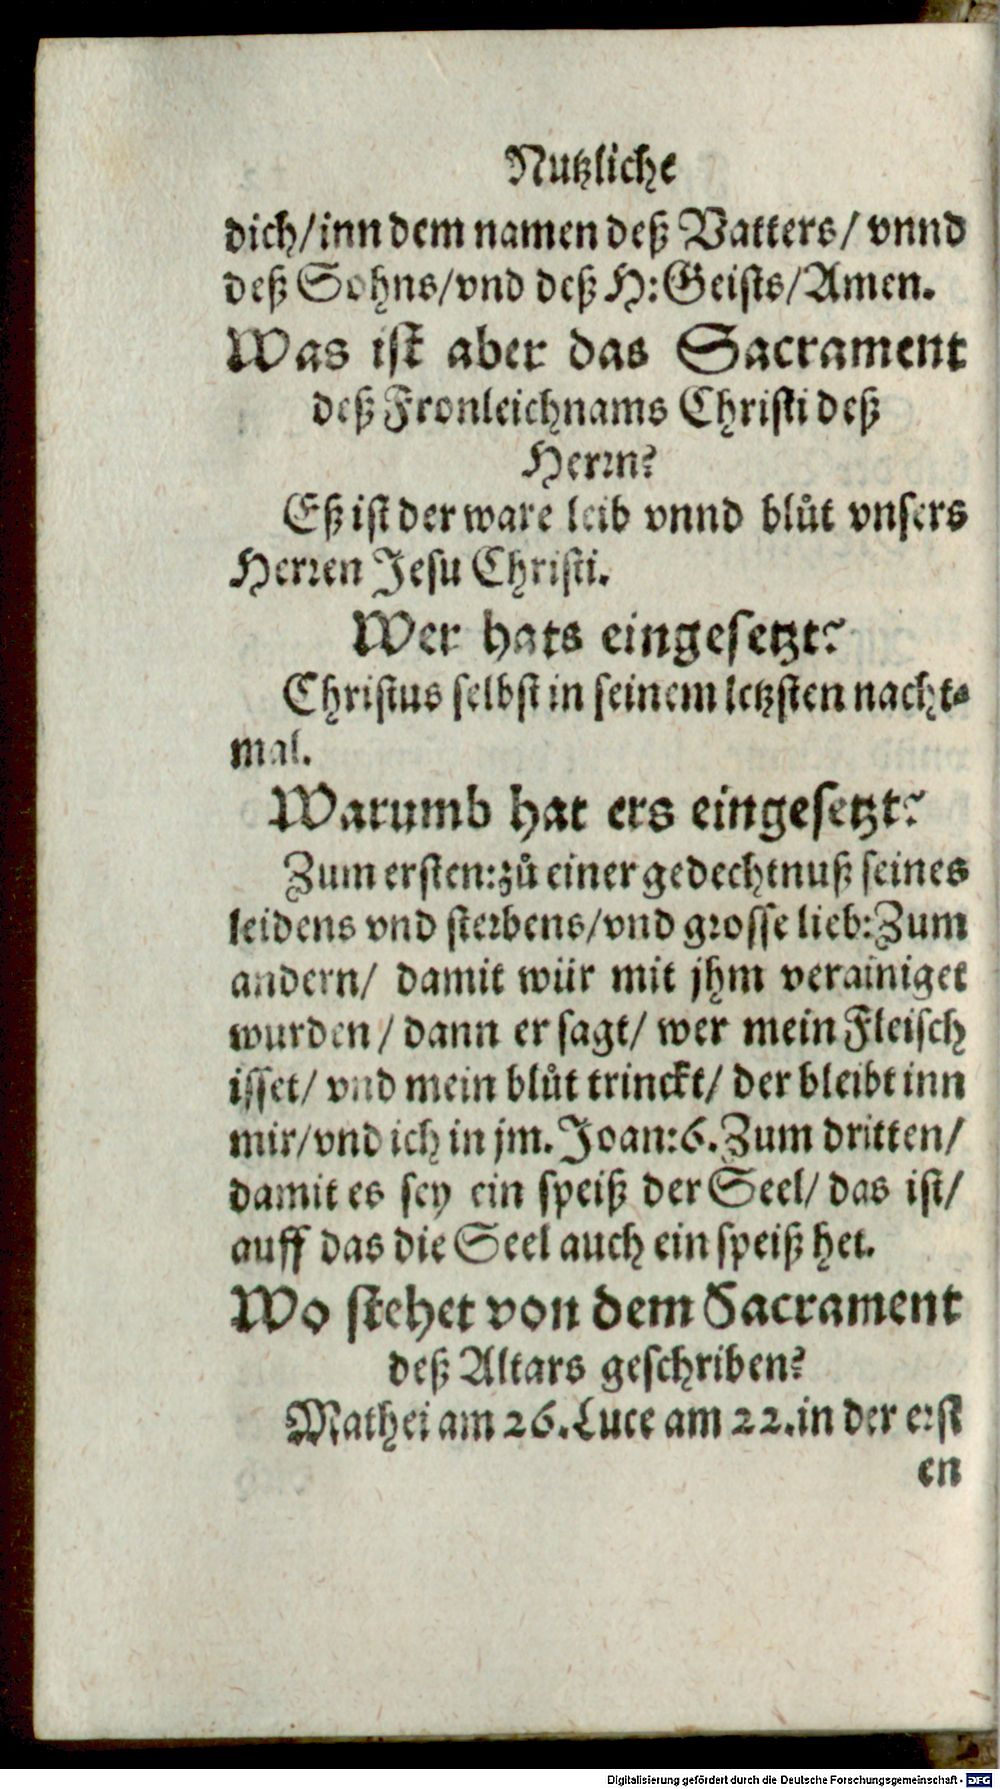 Nutzliche
dich/inn dem namen deß Vatters/ vnnd
deß Sohns/vnd deß H: Geists/Amen.
Was ist aber das Sacrament
deß Fronleichnams Christi deß
Herrn?
Eß ist der ware leib vnnd blůt vnsers
Herren Jesu Christi.
Wer hats eingesetzt?
Christus selbst in seinem letzsten nacht-
mal.
Warumb hat ers eingesetzt?
Zum ersten: zů einer gedechtnuß seines
leidens vnd sterbens/vnd grosse lieb: Zum
andern/ damit wür mit jhm verainiget
wurden/ dann er sagt/ wer mein Fleisch
isset/ vnd mein blůt trinckt/ der bleibt inn
mir/vnd ich in jm. Joan: 6. Zum dritten/
damit es sey ein speiß der Seel/ das ist/
auff das die Seel auch ein speiß het.
Wo stehet von dem Sacrament
deß Altars geschriben?
Mathei am 26. Luce am 22. in der erst
en
Digitalisierung gefördert durch die Deutsche Forschungsgemeinschaft - DFG